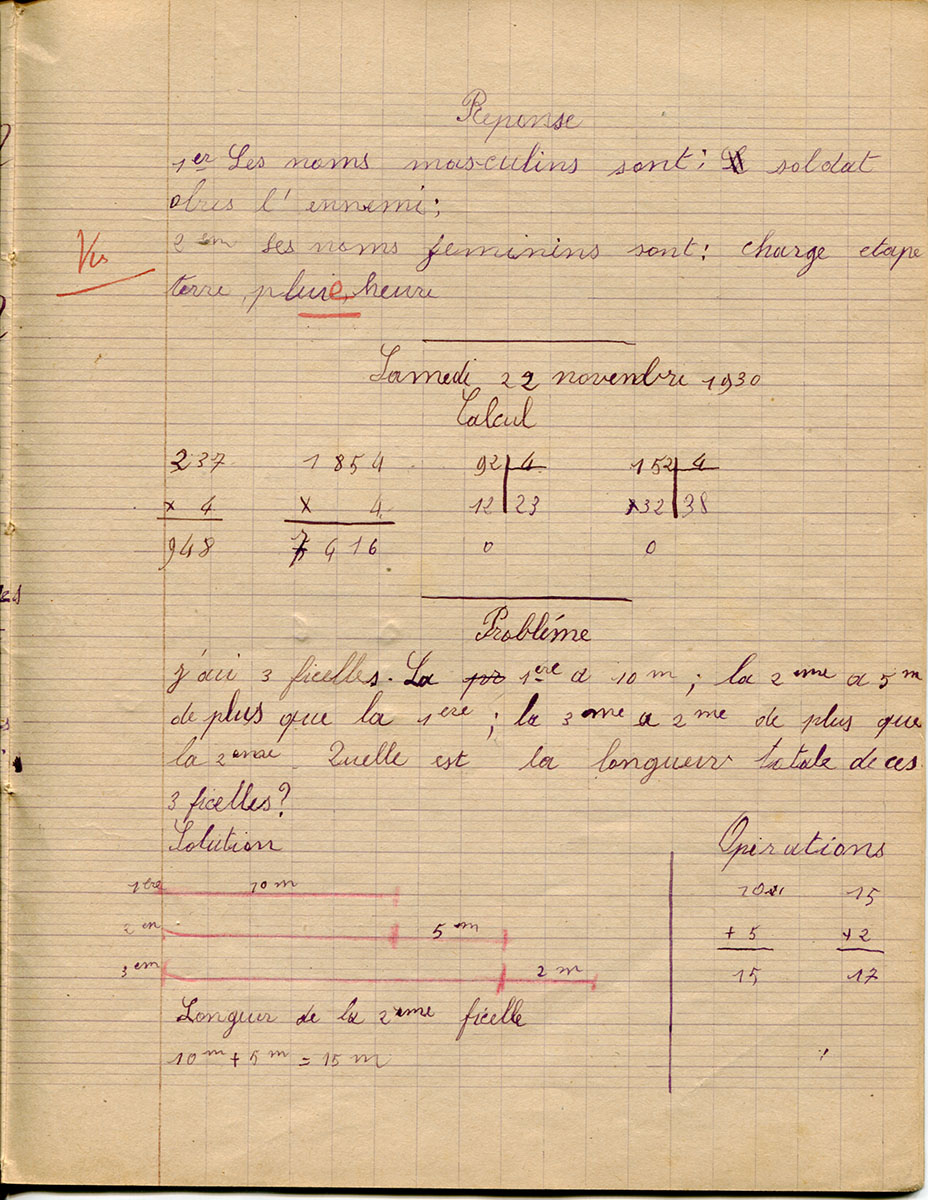 Reponse
1er Les noms masculins sont: soldat
obus l'ennemi;
2em Les noms feminins sont: charge etape
Vu
terre, pluie, heure
Samedi 22 novembre 1930
Calcul
237 1854 92 4 152 4
x 4 x 4 12 23 32 38
948 7416 0 0
Probléme
J'ai 3 ficelles. La 1ere a 10 m; la 2eme a 5 m
de plus que la 1ere; la 3me a 2 me de plus que
la 2eme Quelle est la longueur totale de ces
3 ficelles?
Solution
Opérations
1ere 10 m
2em 5 m
3em 2 m
10 15
+ 5 + 2
15 17
Longueur de la 2eme ficelle
10 m + 5 m = 15 m